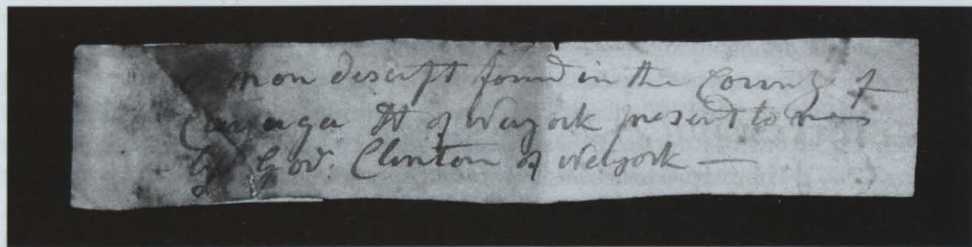 non descript found in the County of
Cayuga St of Newyork present to me
by Govr. Clinton of Newyork —